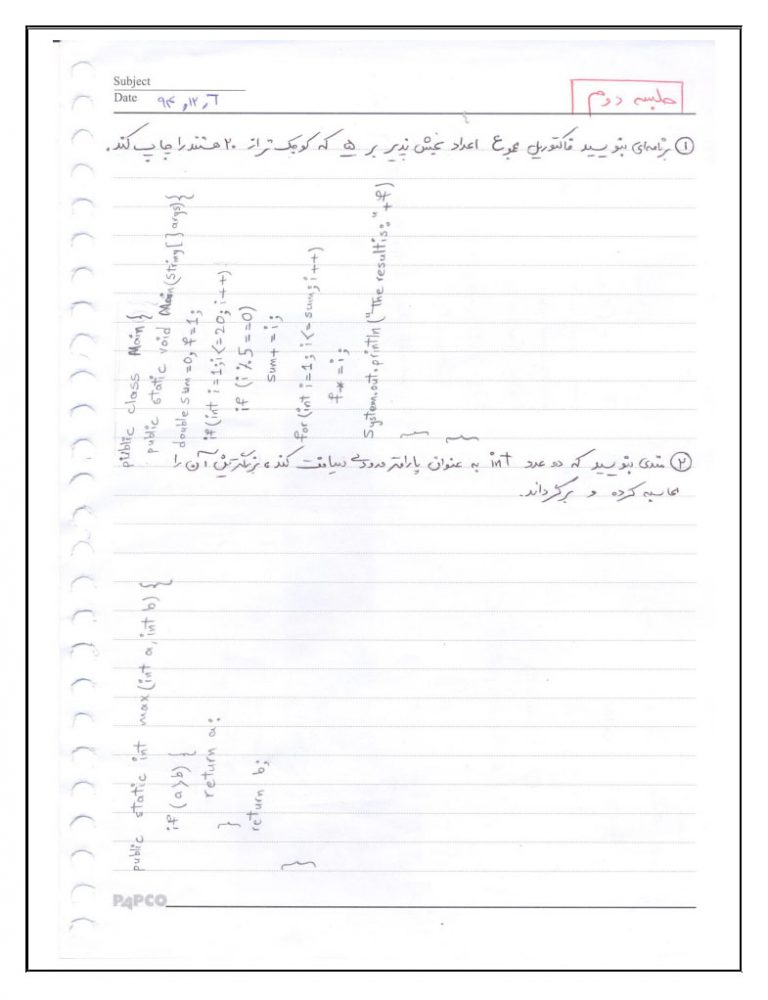 Subject
Date ۹۴,۱۲,۶
جلسه دوم
① برنامه‌ای بنویسید فاکتوریل مجموع اعداد بخش پذیر بر ۵ که کوچک تر از ۲۰ هستند را چاپ کند.
public class Main {
public static void Main(String[] args) {
double sum=0, f=1;
if (int i=1; i<=20; i++)
if (i%5==0)
sum+=i;
for (int i=1; i<=sum; i++)
f*=i;
System.out.println("The result is:"+f)
}
}
② متدی بنویسید که دو عدد int به عنوان پارامتر ورودی دریافت کند، بزرگترین آن را
محاسبه کرده و برگرداند.
public static int max(int a, int b) {
if (a>b) {
return a;
}
return b;
}
PAPCO